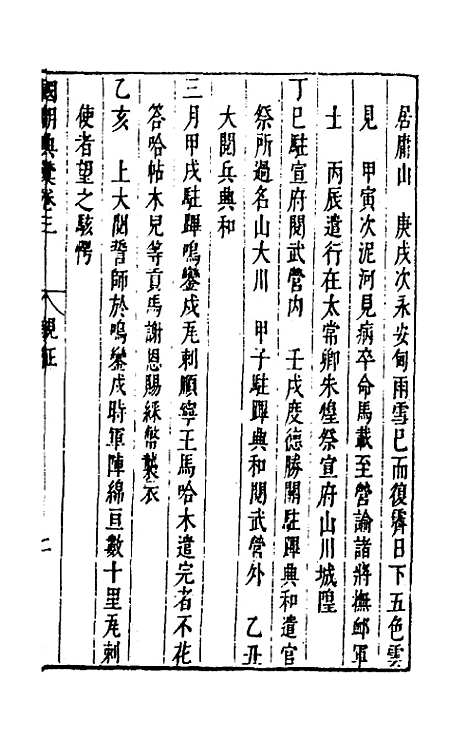 居庸山　庚戌次永安甸雨雪已而復霽日下五色雲
見　甲寅次泥河見病卒命馬載至營諭諸將撫䘏軍
士　丙辰遣行在太常卿朱焜祭宣府山川城隍
丁巳駐宣府閱武營內　壬戌度德勝關駐蹕興和遣官
祭所過名山大川　甲子駐蹕興和閱武營外　乙丑
大閱兵興和
三月甲戌駐蹕鳴鑾戍瓦剌順寧王馬哈木遣完者不花
答哈帖木兒等貢馬謝恩賜綵幣襲衣
乙亥　上大閱誓師於鳴鑾戍時軍陣綿亘數十里瓦剌
使者望之駭愕
國朝典彙卷三　親征　二